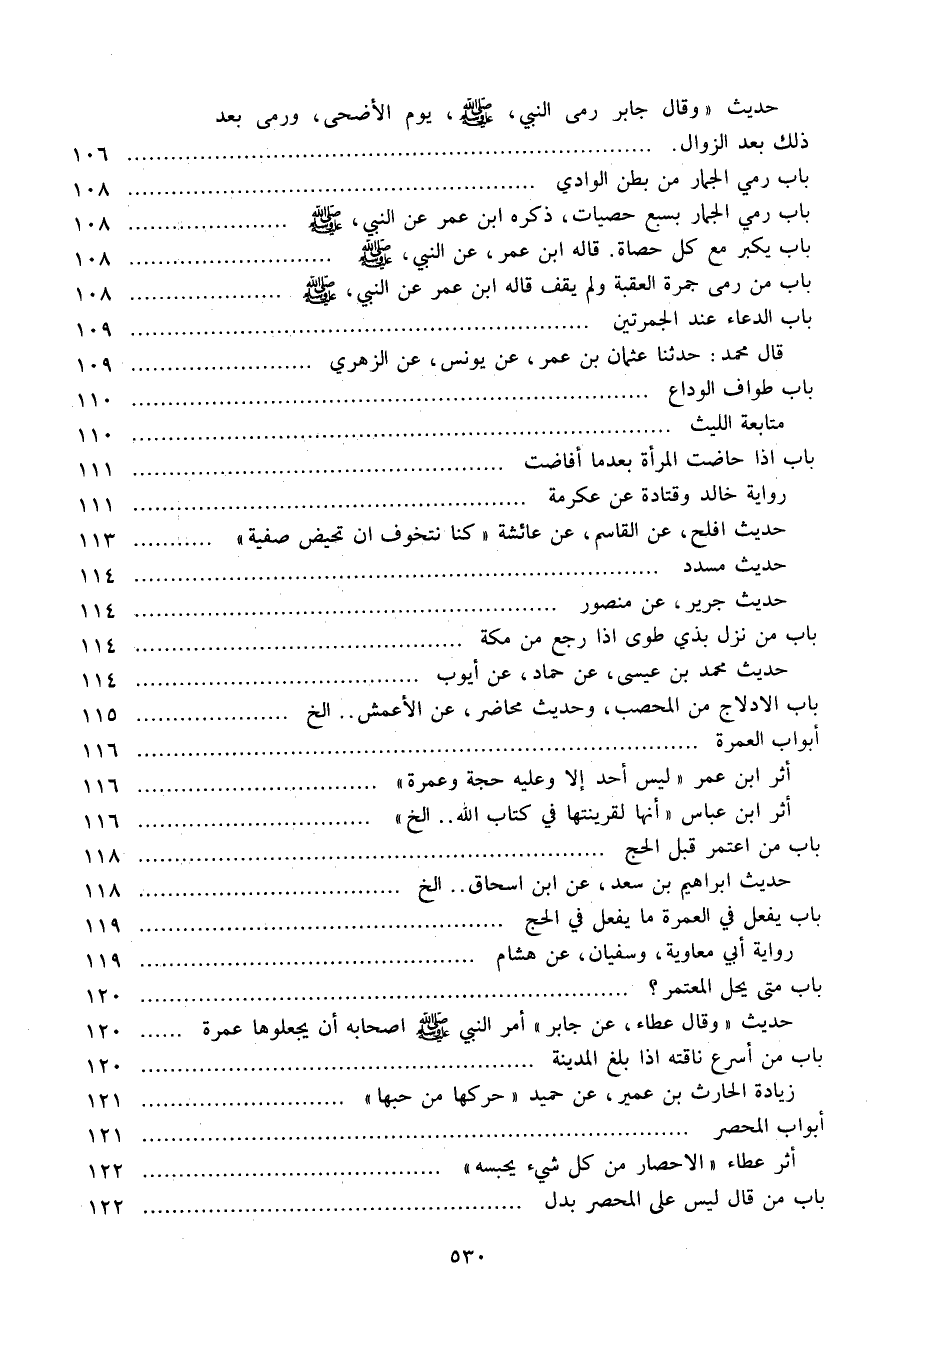 حديث «وقال جابر رمى النبي، ﷺ، يوم الأضحى، ورمى بعد
ذلك بعد الزوال. ........ ١٠٦
باب رمي الجمار من بطن الوادي ........ ١٠٨
باب رمي الجمار بسبع حصيات، ذكره ابن عمر عن النبي، ﷺ ........ ١٠٨
باب يكبر مع كل حصاة. قاله ابن عمر، عن النبي، ﷺ ........ ١٠٨
باب من رمى جمرة العقبة ولم يقف قاله ابن عمر عن النبي، ﷺ ........ ١٠٨
باب الدعاء عند الجمرتين ........ ١٠٩
قال محمد: حدثنا عثمان بن عمر، عن يونس، عن الزهري ........ ١٠٩
باب طواف الوداع ........ ١١٠
متابعة الليث ........ ١١٠
باب اذا حاضت المرأة بعدما أفاضت ........ ١١١
رواية خالد وقتادة عن عكرمة ........ ١١١
حديث افلح، عن القاسم، عن عائشة «كنا نتخوف ان تحيض صفية» ........ ١١٣
حديث مسدد ........ ١١٤
حديث جرير، عن منصور ........ ١١٤
باب من نزل بذي طوى اذا رجع من مكة ........ ١١٤
حديث محمد بن عيسى، عن حماد، عن أيوب ........ ١١٤
باب الادلاج من المحصب، وحديث محاضر، عن الأعمش.. الخ ........ ١١٥
أبواب العمرة ........ ١١٦
أثر ابن عمر «ليس أحد إلا وعليه حجة وعمرة» ........ ١١٦
أثر ابن عباس «أنها لقرينتها في كتاب الله.. الخ» ........ ١١٦
باب من اعتمر قبل الحج ........ ١١٨
حديث ابراهيم بن سعد، عن ابن اسحاق.. الخ ........ ١١٨
باب يفعل في العمرة ما يفعل في الحج ........ ١١٩
رواية أبي معاوية، وسفيان، عن هشام ........ ١١٩
باب متى يحل المعتمر؟ ........ ١٢٠
حديث «وقال عطاء، عن جابر» أمر النبي ﷺ اصحابه أن يجعلوها عمرة ...... ١٢٠
باب من أسرع ناقته اذا بلغ المدينة ........ ١٢٠
زيادة الحارث بن عمير، عن حميد «حركها من حبها» ........ ١٢١
أبواب المحصر ........ ١٢١
أثر عطاء «الاحصار من كل شيء يحبسه» ........ ١٢٢
باب من قال ليس على المحصر بدل ........ ١٢٢
٥٣٠